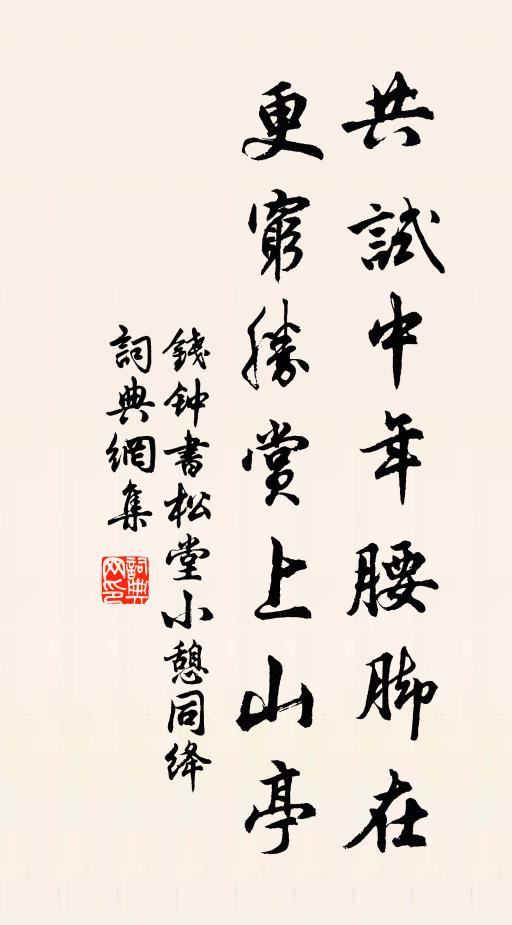 共試中年腰脚在
更窮勝賞上山亭
錢钟書松堂小憩同绛
詞典網集
詞典网印